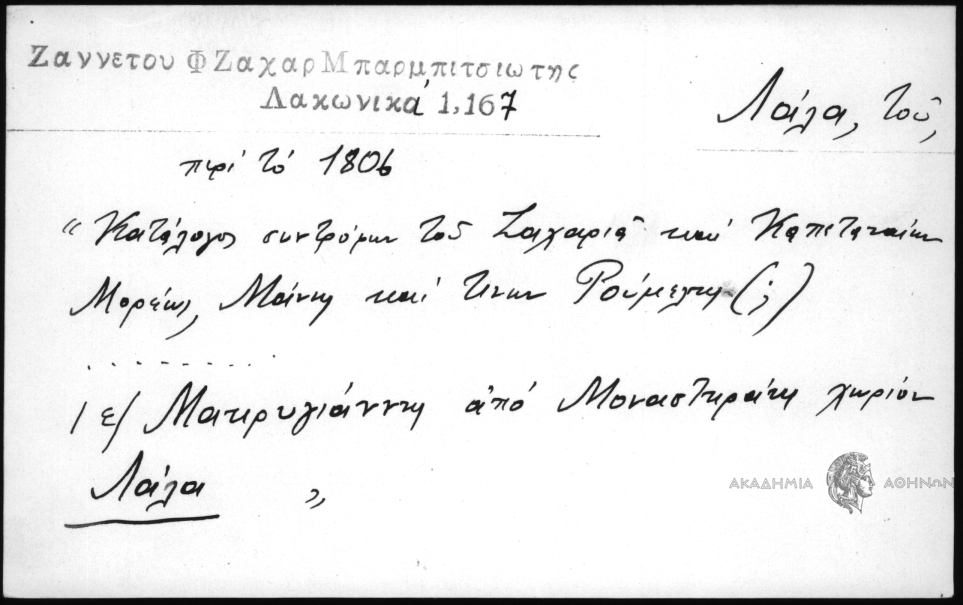 Ζαννετου Φ Ζαχαρ Μπαρμπιτσιωτης
Λακωνικά 1,167
Λάλα, τοῦ,
περί τό 1806
“Κατάλογος συντρόφων τοῦ Ζαχαριᾶ καί Καπεταναίων
Μορέως, Μάνης και τινων Ρούμελης (;)
. . . . . . . .
1 ε/ Μακρυγιάννης από Μοναστηράκη χωρίον
Λάλα ”
ΑΚΑΔΗΜΙΑ ΑΘΗΝΩΝ